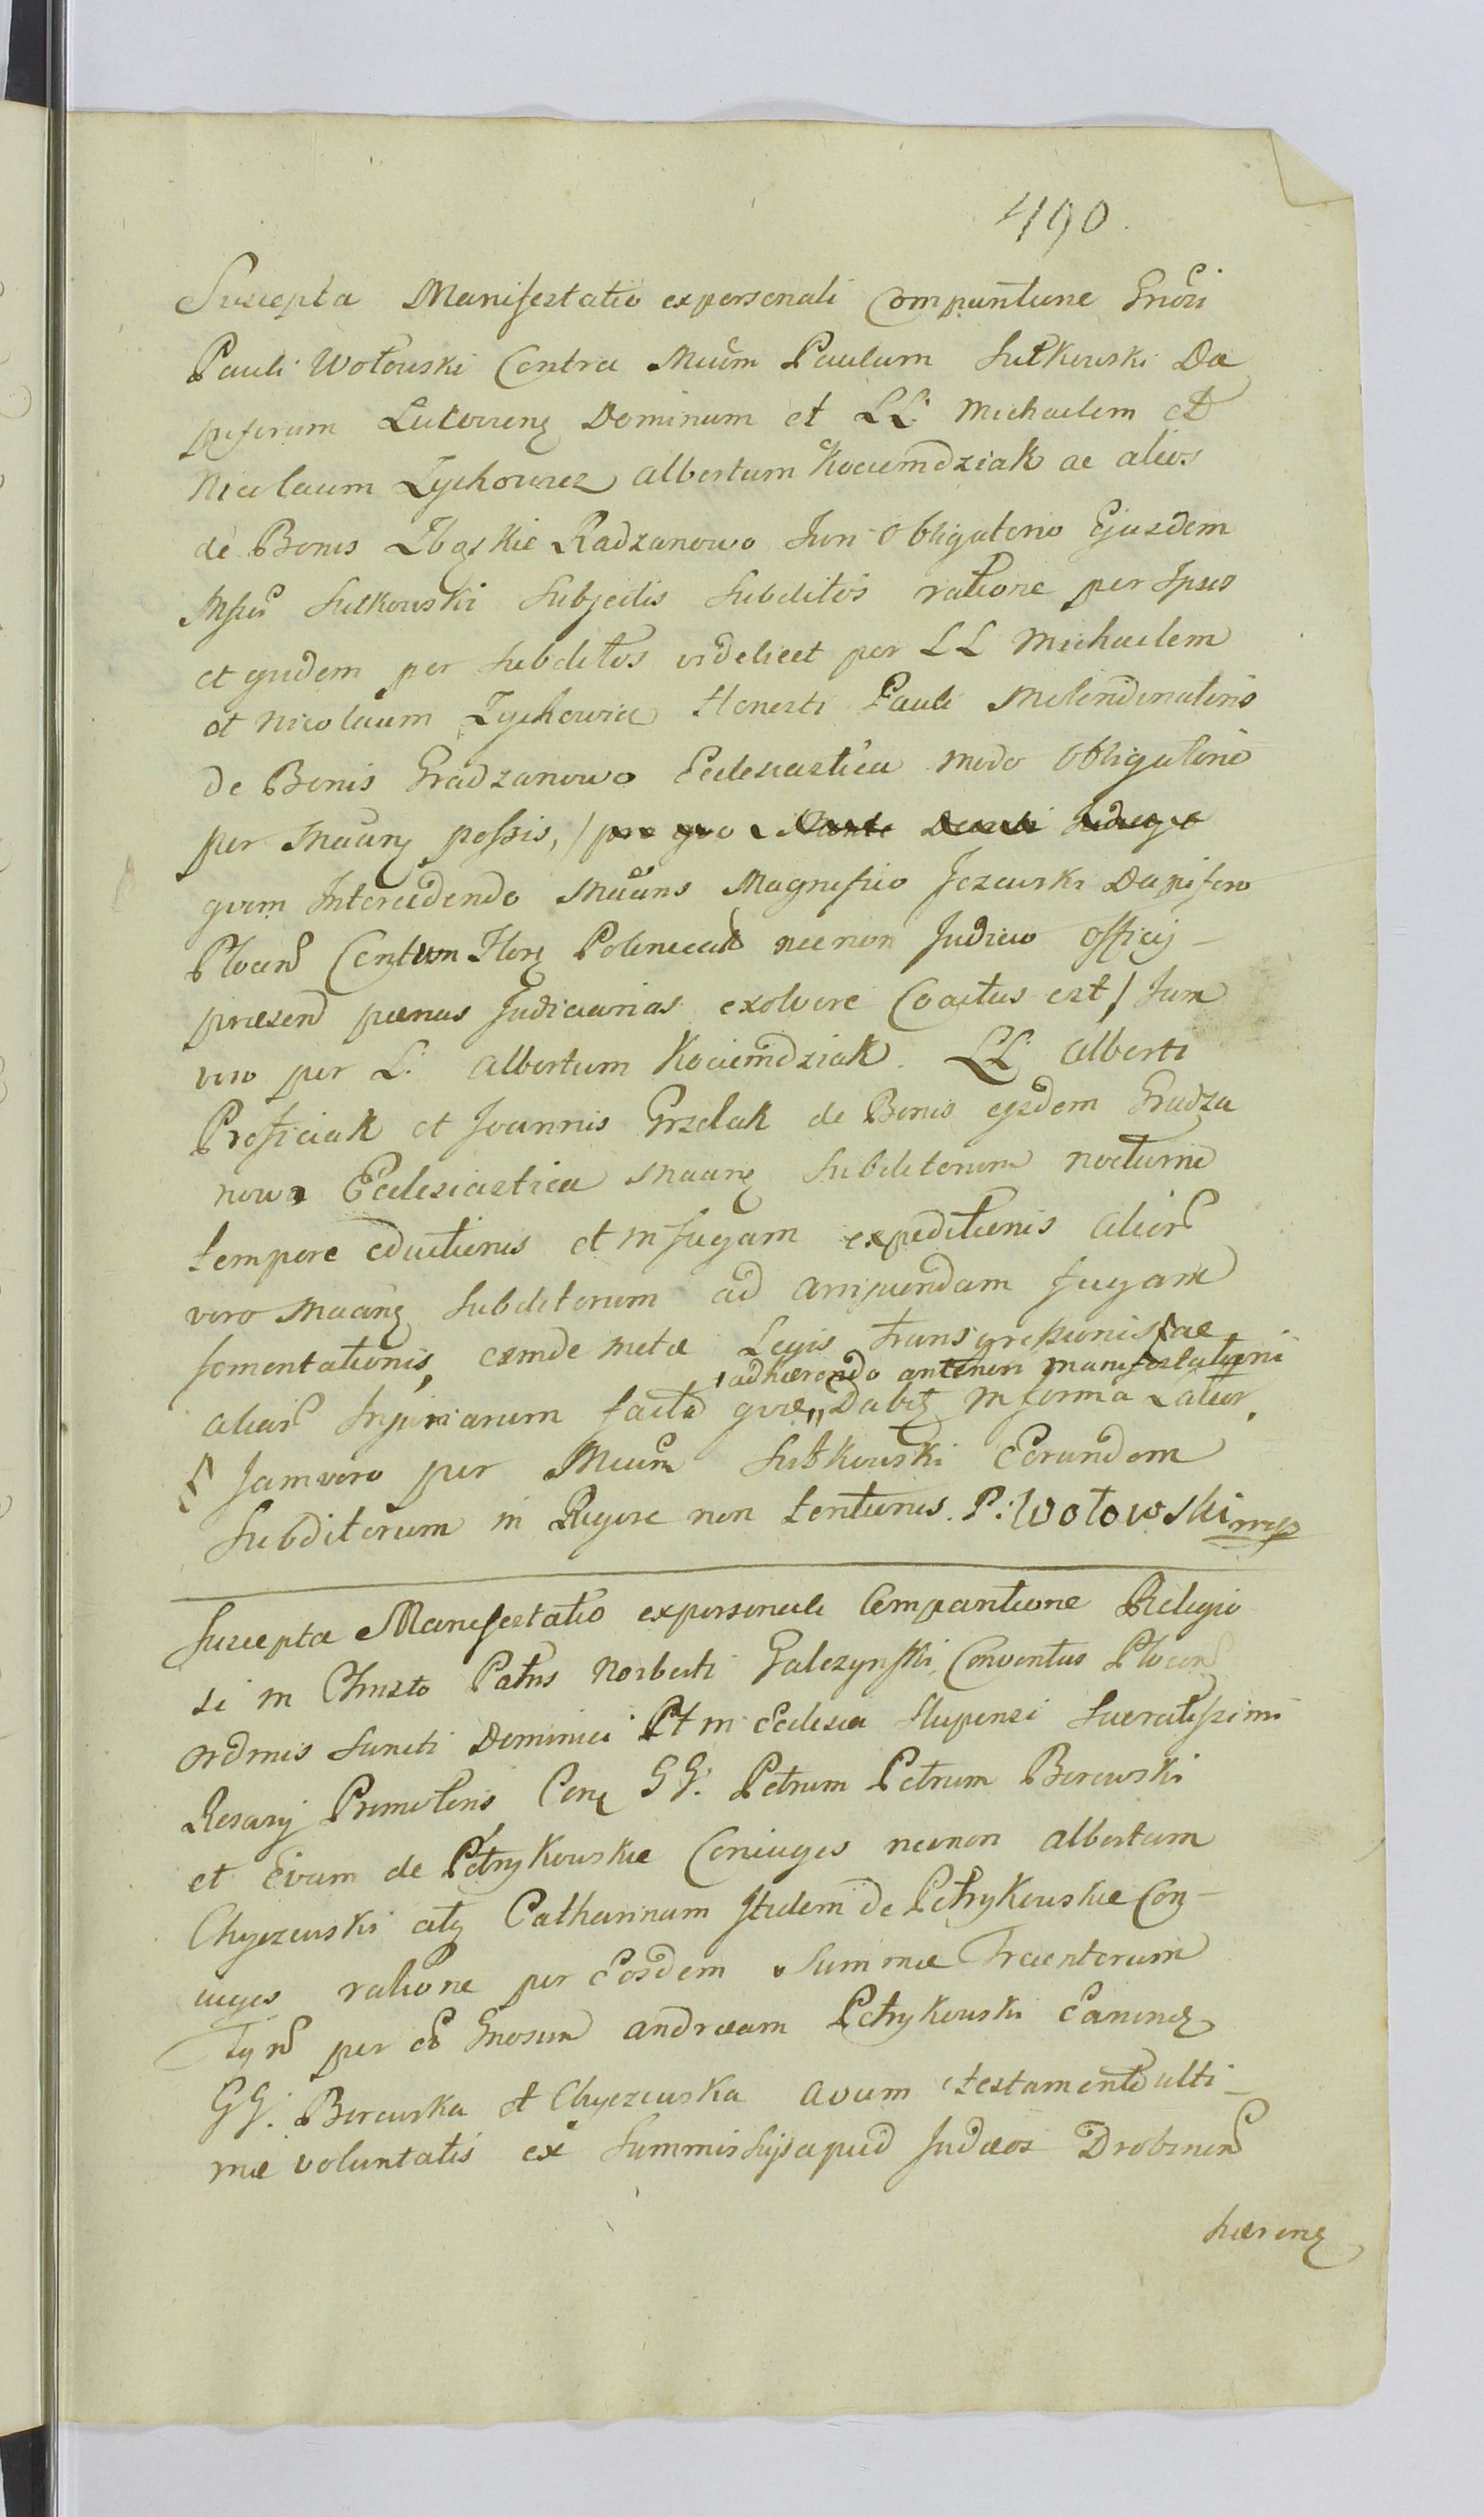 490.
Suscepta Manifestatio ex personali Compantione Gnosi
Pauli Wołowski Contra Mcum Paulum Sutkowski Da
piferum Dominum et LL. Michaelem et
Nicolaum Zychowicz Albertum Kociemdziak ac alios
de Bonis Zbąskie Radzanowo Juri Obligatorio Ejusdem
Mfici Sutkowski Subjectis Subditos ratione per Ipsos
et quidem per Subditos videlicet per LL Michaelem
et Nicolaum Zychowicz Honesti Pauli Molendinatoris
de Bonis Gradzanowo Ecclesiastica modo Obligatorio
per Maanẽ possis, / pro quo
quem Intercedendo Maans Magnifico Jezewski Dapifero
Plocens Centum Flor Polonicali necnon Judicio Officij
praesens paenas Judiciarias exolvere Coactus est / Tum
vero per L. Albertum Kociemdziak. LL. Alberti
Proficiak et Joannis Grzelak de Bonis ejsdem Gradza
nowo Ecclesiastica Maanẽ Subditorum nocturno
tempore eductionis et in fugam expeditionis alior
vero Maanẽ Subditorum ad arripiendam fugam
fomentationis, eximde metae Legis transgressionis ac
adhaerendo anteriori manifestationi
aliar Injuriarum facta quae Dabit in forma Latior.
Jam vero per Mcum Sutkowski Eorundem
Subditorum in Rigore non tentionis. P. Wołowski mp
Suscepta Manifestatio ex personali Compantione Religio
si in Christo Patris Norberti Galczynski, Conventus Plocens
Ordinis Sancti Dominici Et in Ecclesia Slupensi Sacratissimi
Rosarij Promotoris Con GG. Petrum Petrum Borewski
et Evam de Petrykowskie Coniuges necnon Albertum
Chyczewski atq Catharinam Itidem de Petrykowskie Con-
iuges ratione per Eosdem Summae Trecentorum
Tyn per Gnosum Andream Petrykowski
GG. Borewska et Chyczewska avum testamento ulti-
mae voluntatis ex Summis Suis apud Judaeos Drobinens
haerenẽ